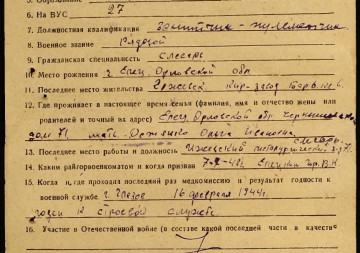 6. На ВУС 27
7. Должностная квалификация пулеметчик
8. Военное звание Рядовой
9. Гражданская специальность слесарь
10. Место рождения г. Елец, Орловской обл
11. Последнее место жительства г. Ижевск,
12. Где проживает в настоящее время семья (фамилия, имя и отчество жены или
родителей и точный их адрес) Елец, Орловской обл.
дом 71 мать Ольга Ивановна
слесарь
13. Последнее место работы и должность Ижевский металлургический
14. Каким райгорвоенкоматом и когда призван
15. Когда и, где проходил последний раз медкомиссию и результат годности к
военной службе г. Глазов 16 февраля 1944г.
годен к строевой службе
16. Участие в Отечественной войне (в составе какой последней части и в качестве